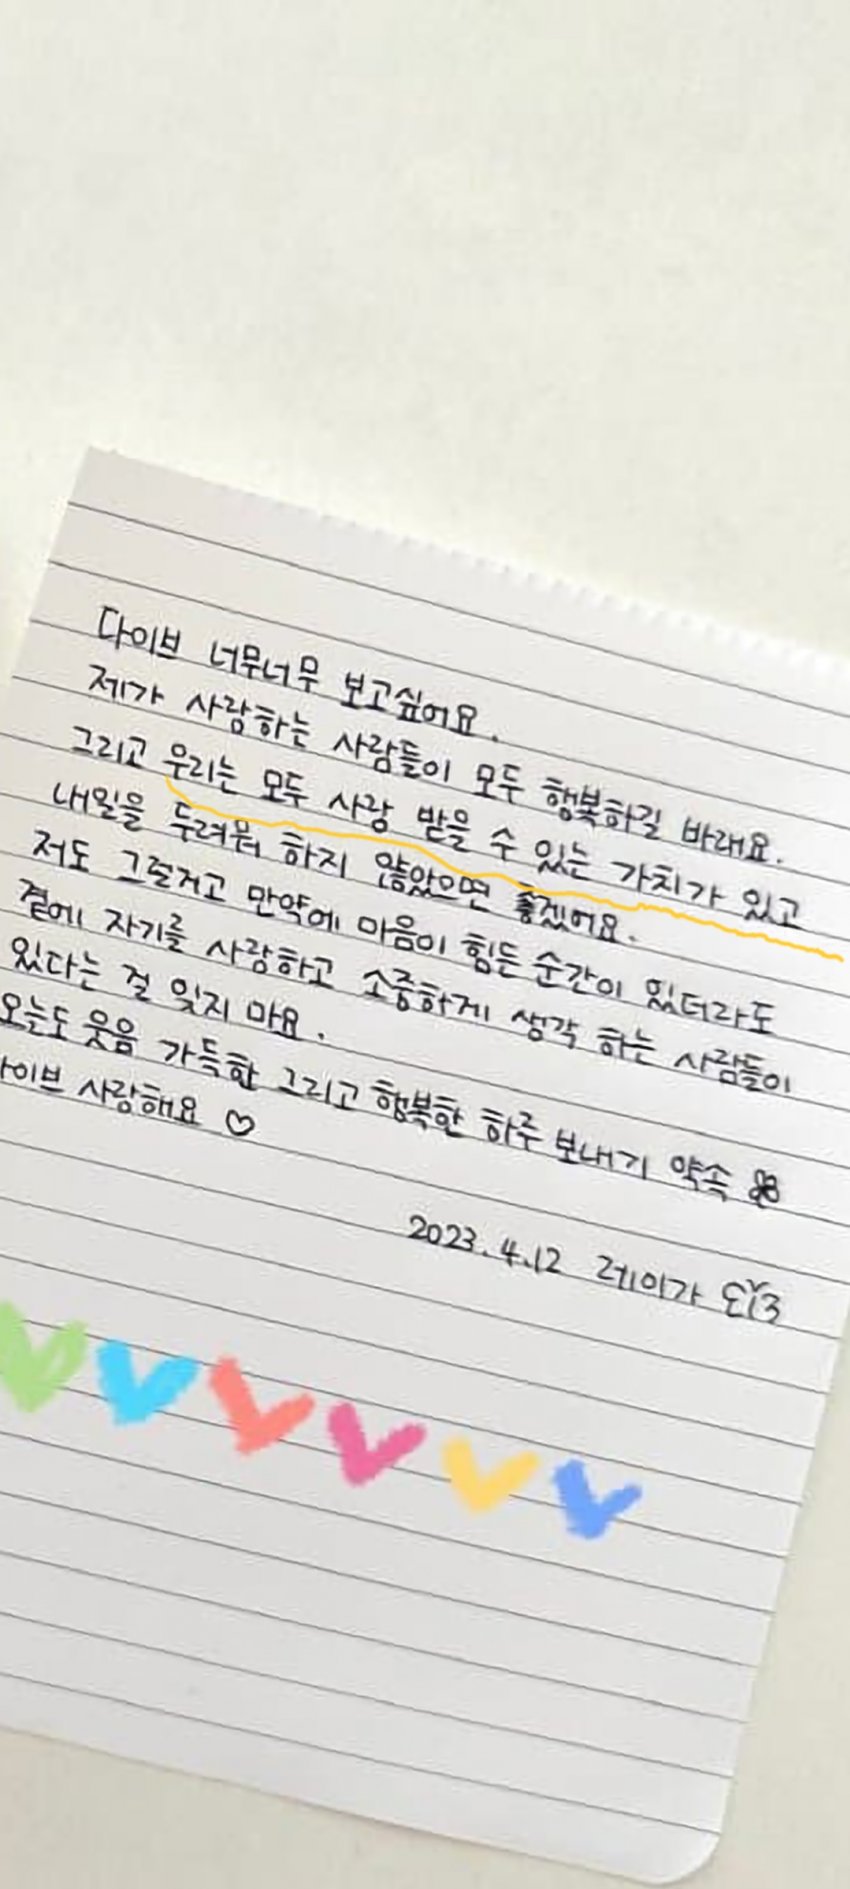 다이브 너무너무 보고싶어요.
제가 사랑하는 사람들이 모두 행복하길 바래요.
그리고 우리는 모두 사랑 받을 수 있는 가치가 있고
내일을 두려워 하지 않았으면 좋겠어요.
저도 그럴거고 만약에 마음이 힘든 순간이 있더라도
곁에 자기를 사랑하고 소중하게 생각 하는 사람들이
있다는 걸 잊지 마요.
오늘도 웃음 가득한 그리고 행복한 하루 보내기 약속
이브 사랑해요 ♡
2023.4.12 레이가